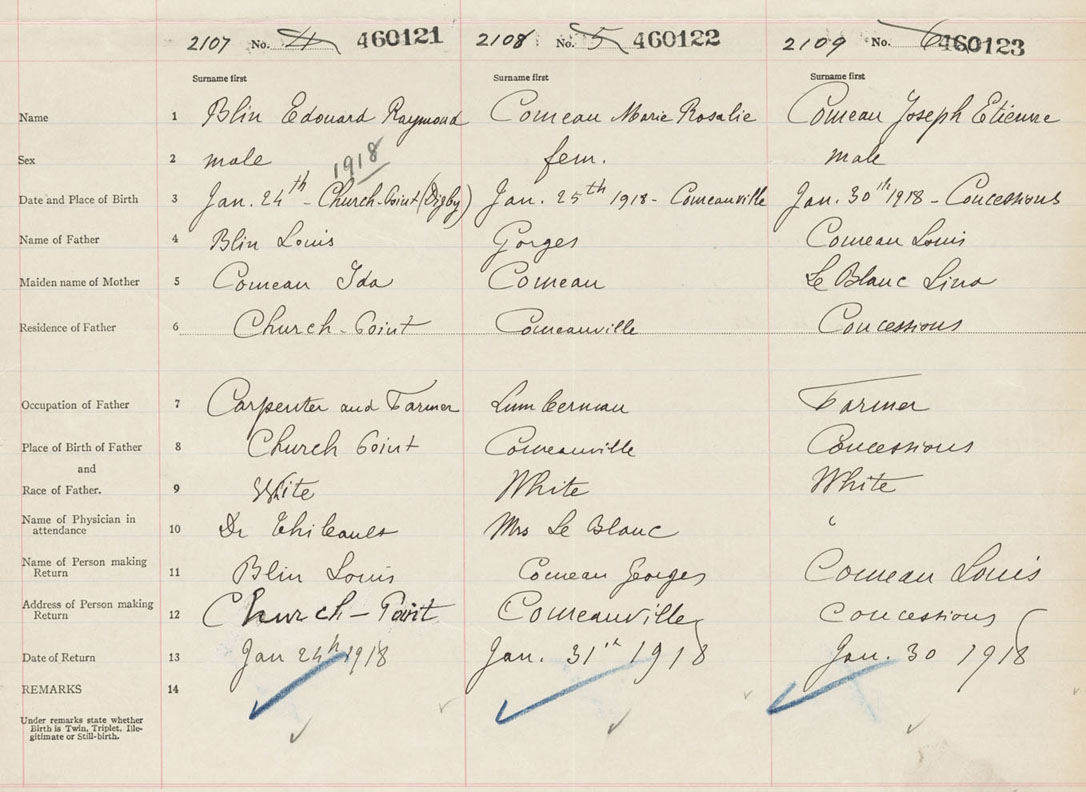 2107 No. 4 460121 2108 No. 5 460122 2109 No. 6 460123
Surname first Surname first Surname first
Name 1 Blin Edouard Raymond Comeau Marie Rosalie Comeau Joseph Etienne
Sex 2 male 1918 fem. male
Date and Place of Birth 3 Jan. 24th - Church-Point (Digby) Jan. 25th 1918 - Comeauville Jan. 30th 1918 - Concessions
Name of Father 4 Blin Louis Gorges Comeau Louis
Maiden name of Mother 5 Comeau Ida Comeau Le Blanc Lina
Residence of Father 6 Church-Point Comeauville Concessions
Occupation of Father 7 Carpenter and Farmer Lumberman Farmer
Place of Birth of Father 8 Church Point Comeauville Concessions
and
Race of Father. 9 White White White
Name of Physician in
attendance 10 Dr Mrs Le Blanc "
Name of Person making
Return 11 Blin Louis Comeau Georges Comeau Louis
Address of Person making
Return 12 Church-Point Comeauville Concessions
Date of Return 13 Jan 24th 1918 Jan. 31st 1918 Jan. 30 1918
REMARKS 14
Under remarks state whether
Birth is Twin, Triplet, Ille-
gitimate or Still-birth.